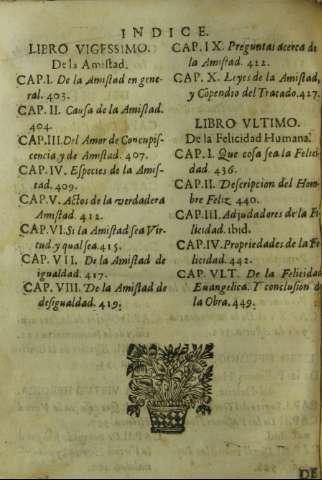 INDICE.
LIBRO VIGESSIMO.
De la Amistad.
CAP.I. De la Amistad en gene-
ral. 403.
CAP. II. Causa de la Amistad.
404.
CAP.III.Del Amor de Concupis-
cencia y de Amistad. 407.
CAP.IV. Especies de la Amis-
tad. 409.
CAP.V. Actos de la verdadera
Amistad. 412.
CAP.VI.Si la Amistad sea Vir-
tud,y qual sea.415.
CAP. VII. De la Amistad de
igualdad. 417.
CAP. VIII. De la Amistad de
desigualdad. 419.
CAP. IX. Preguntas acerca de
la Amistad. 422.
CAP. X. Leyes de la Amistad,
y Cōpendio del Tratado.427.
LIBRO VLTIMO.
De la Felicidad Humana.
CAP.I. Que cosa sea la Felici-
dad. 436.
CAP.II. Descripcion del Hom-
bre Feliz. 440.
CAP.III. Adjudadores de la Fe
licidad. ibid.
CAP.IV. Propriedades de la Fe
licidad. 442.
CAP. VLT. De la Felicidad
Euangelica. Y conclusion de
la Obra. 449.
DE